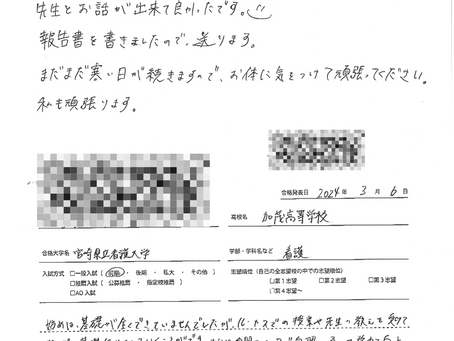 先生とお話が出来て良かったです。
報告書を書きましたので、送ります。
まだまだ寒い日が続きますので、お体に気をつけて頑張ってください。
私も頑張ります。
合格発表日 2024年 3月 6日
高校名 加茂高等学校
合格大学名 宮崎県立看護大学
学部・学科名など 看護
入試方式 □一般入試（前期・後期・私大・その他）
□推薦入試（公募推薦・指定校推薦）
□AO入試
志望順位（自己の全志望校の中での志望順位）
□第1志望 □第2志望 □第3志望
□第4志望～
始めは、基礎が全くできていませんでしたが、